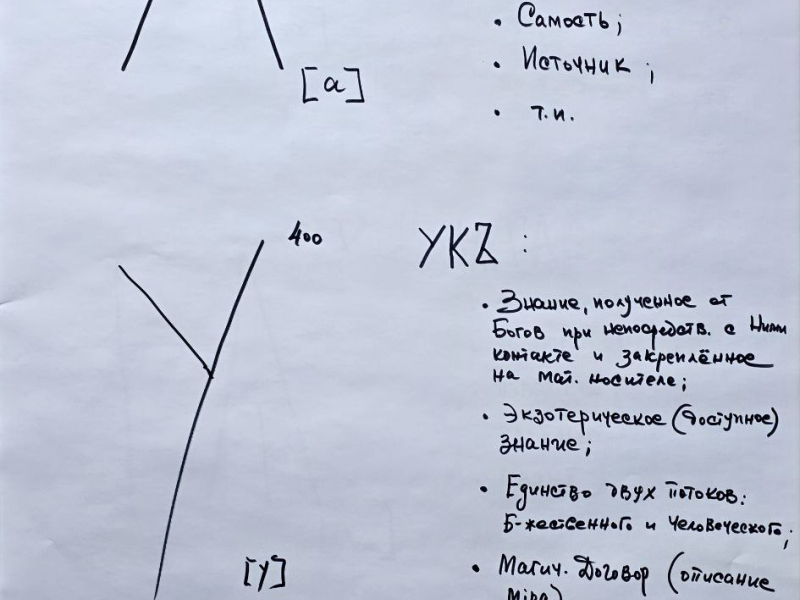 • Самость;
• Источник;
• т.и.
[а]
400
УКЪ:
• Знание, полученное от
Богов при непосредств. с Ними
контакте и закреплённое
на мат. носителе;
• Экзотерическое (доступное)
знание;
• Единство двух потоков:
Б-жественного и Человеческого;
[У]
• Магич. Договор (описание
Мiра)